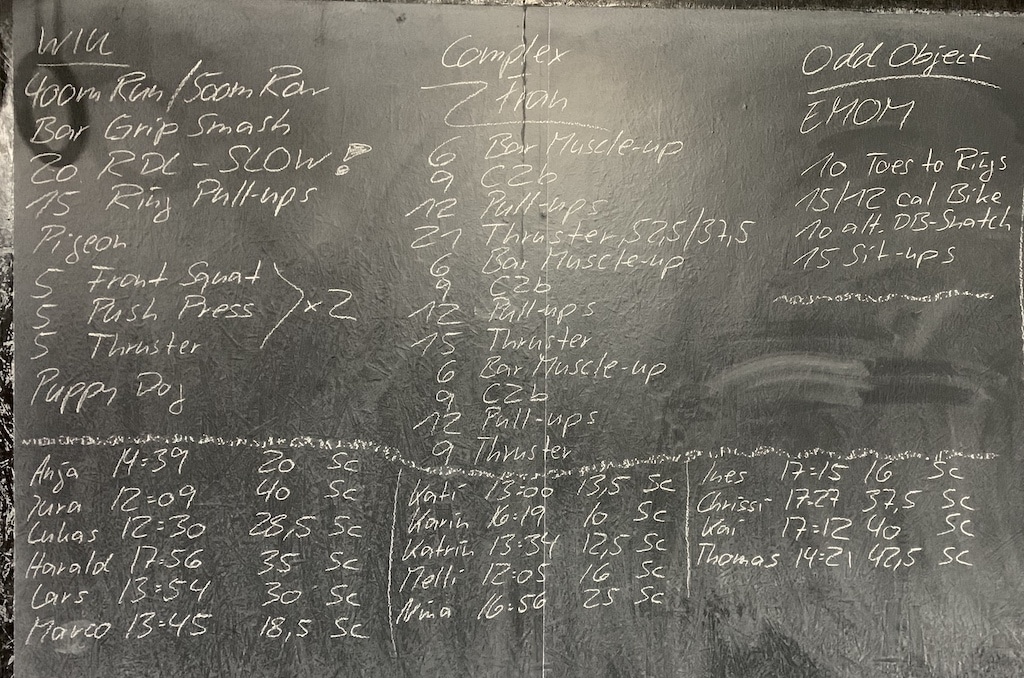 WIU
400m Run/500m Row
Bar Grip Smash
20 RDL - SLOW!
15 Ring Pull-ups
Pigeon
5 Front Squat
5 Push Press
5 Thruster
x 2
Puppy Dog
Complex
Fran
6 Bar Muscle-up
9 C2b
12 Pull-ups
21 Thruster, 52,5/37,5
6 Bar Muscle-up
9 C2b
12 Pull-ups
15 Thruster
6 Bar Muscle-up
9 C2b
12 Pull-ups
9 Thruster
Odd Object
EMOM
10 Toes to Rings
15/12 cal Bike
10 alt. DB-Snatch
15 Sit-ups
Anja 14:39 20 Sc
Jura 12:09 40 Sc
Lukas 12:30 28,5 Sc
Harald 17:56 35 Sc
Lars 13:54 30 Sc
Marco 13:45 18,5 Sc
Kati 13:00 13,5 Sc
Karin 16:19 10 Sc
Katrin 13:34 12,5 Sc
Melli 12:05 16 Sc
Nina 16:56 25 Sc
Ines 17:15 16 Sc
Chrissi 17:27 37,5 Sc
Kai 17:12 40 Sc
Thomas 14:21 42,5 Sc